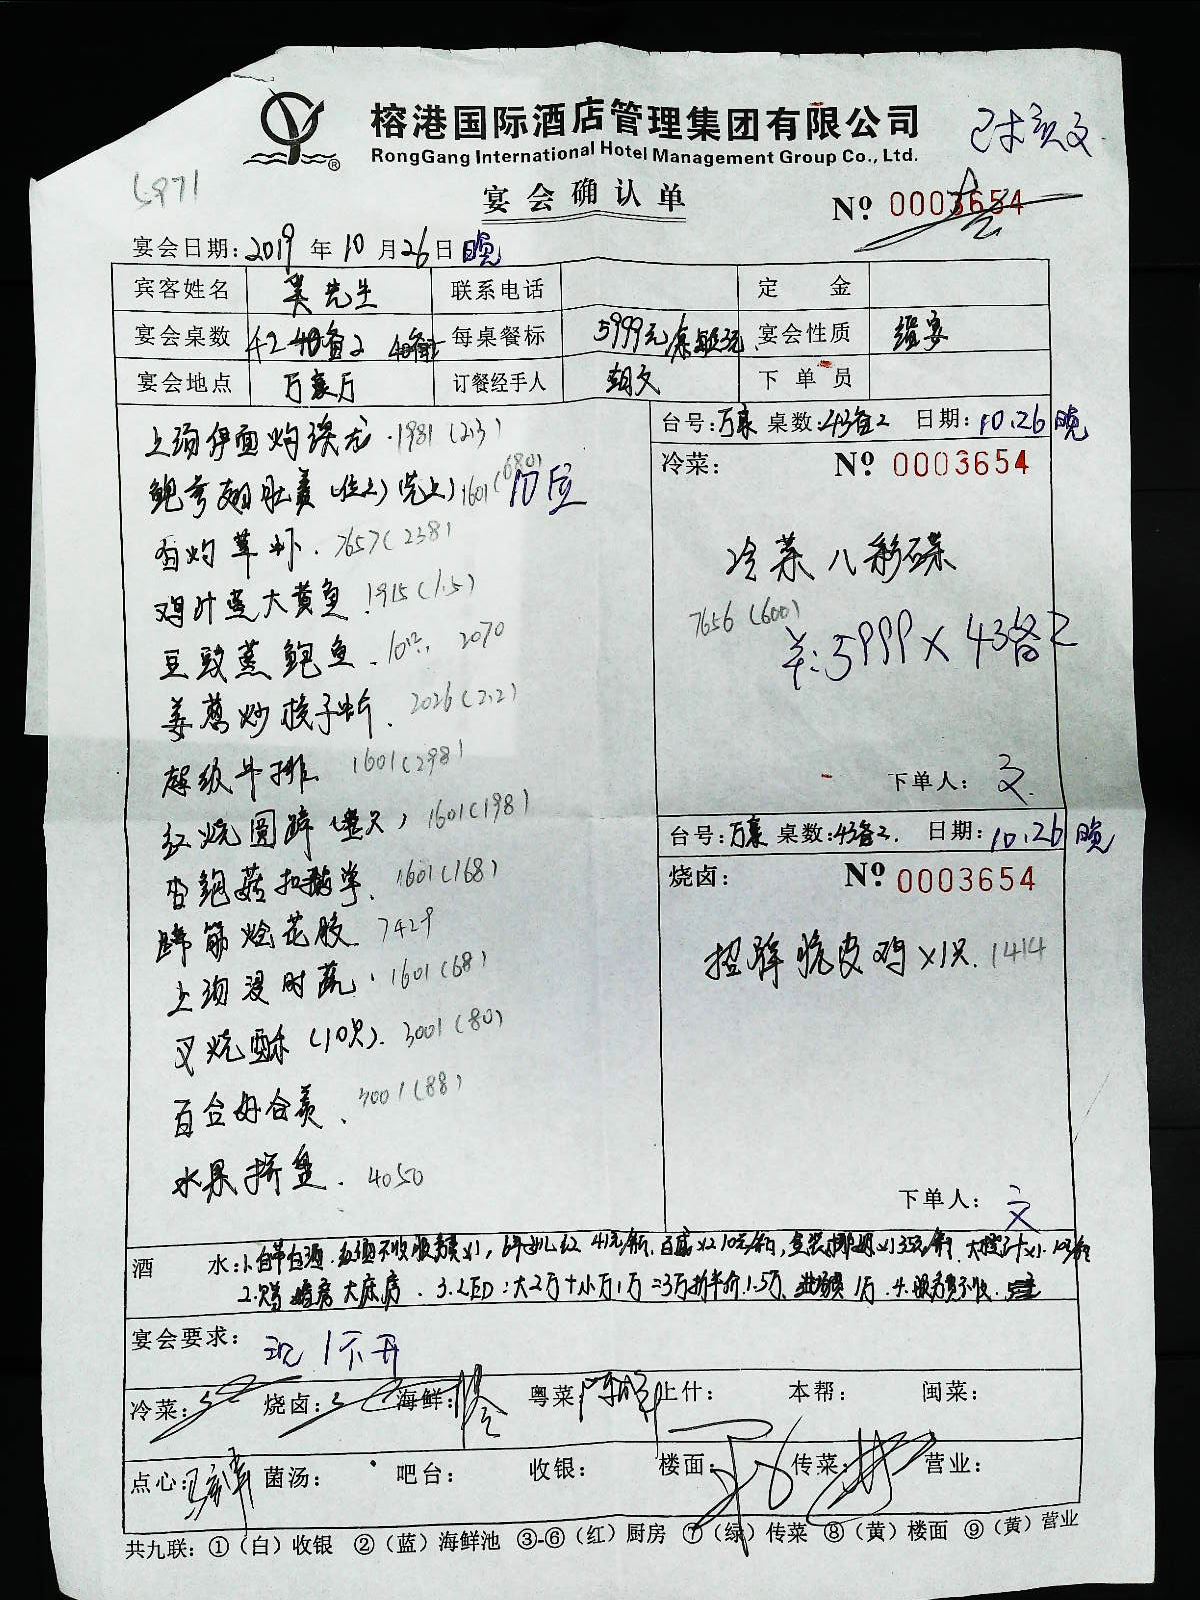 榕港国际酒店管理集团有限公司
RongGang International Hotel Management Group Co., Ltd.
5971
宴会确认单
№ 0003654
宴会日期: 2019 年 10 月 26 日 晚
宾客姓名 吴先生 联系电话 定 金
宴会桌数 42 备2 每桌餐标 5999元/桌 宴会性质
宴会地点 万豪厅 订餐经手人 朝文 下 单 员
台号: 万豪 桌数: 43备2 日期: 10.26 晚
冷菜: № 0003654
上汤伊面灼澳龙. 1981 (2.3)
鲍参翅肚羹 (位上) (先上) 1601 (680) 10位
白灼草虾. 7657 (238)
鸡汁蒸大黄鱼. 1915 (1.5)
豆豉蒸鲍鱼. 10只. 2070
姜葱炒梭子蟹. 2026 (2.2)
超级牛排. 1601 (298)
红烧圆蹄 (整只) 1601 (198)
杏鲍菇扣鹅掌. 1601 (168)
蹄筋烩花胶. 7429
上汤浸时蔬. 1601 (68)
叉烧酥 (10只). 3001 (80)
百合好合羹. 3001 (88)
水果拼盘. 4050
冷菜八彩碟
7656 (600)
单: 5999 × 43备2
下单人: 文
台号: 万豪 桌数: 43备2. 日期: 10.26 晚
烧卤: № 0003654
招牌脆皮鸡×1只. 1414
下单人: 文
酒 水: 1. 自带白酒. 红酒不收服务费
2. 婚房大床房. 3. LED: 大2万+小万1万=3万折半价1.5万. 1万. 4. 服务费不收.
宴会要求:
冷菜: 烧卤: 海鲜: 粤菜: 上什: 本帮: 闽菜:
点心: 菌汤: 吧台: 收银: 楼面: 传菜: 营业:
共九联: ①(白)收银 ②(蓝)海鲜池 ③-⑥(红)厨房 ⑦(绿)传菜 ⑧(黄)楼面 ⑨(黄)营业